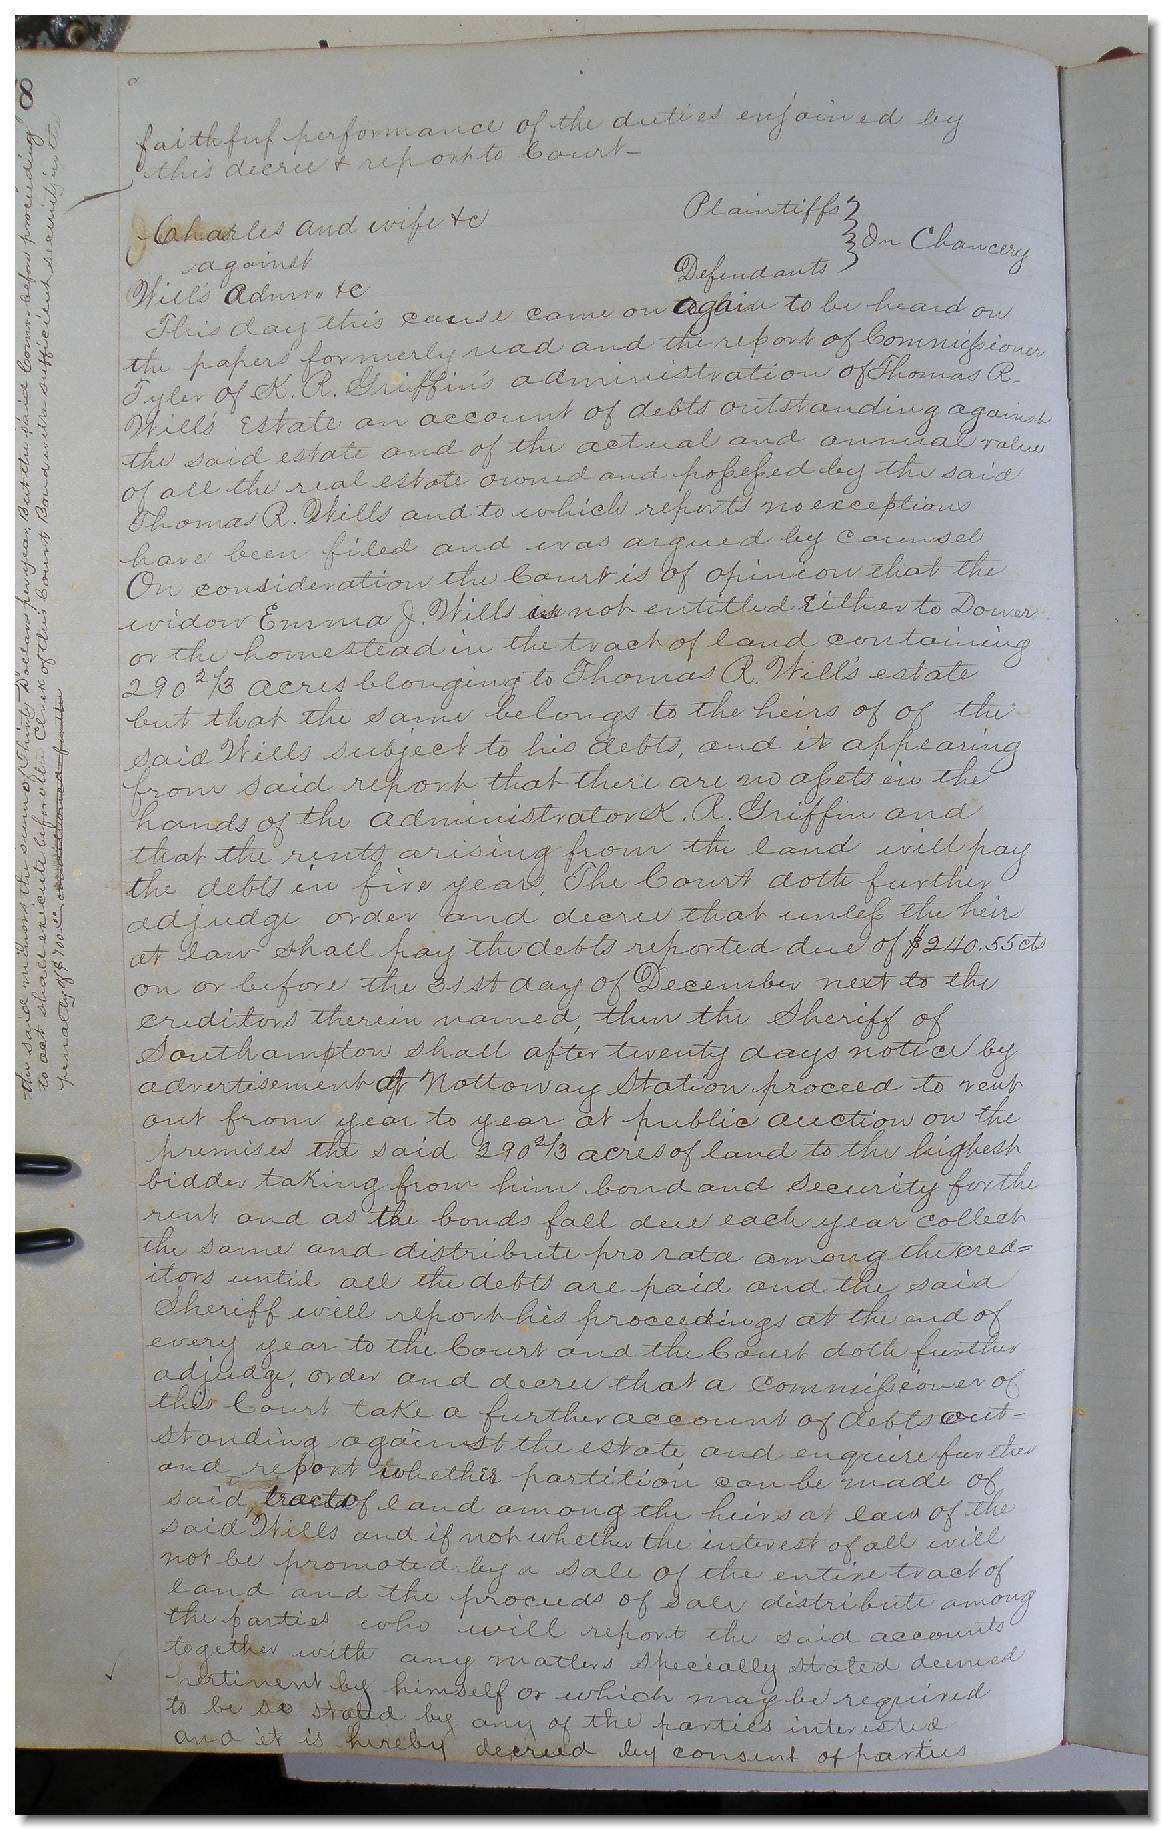 8
faithful performance of the duties enjoined by
this decree & report to Court—
Charles and wife &c Plaintiffs
against In Chancery
Wills Admr. &c Defendants
This day this cause came on again to be heard on
the papers formerly read and the report of Commissioner
Tyler of K. R. Griffin's administration of Thomas R.
Wills' Estate an account of debts outstanding against
the said estate and of the actual and annual value
of all the real estate owned and possessed by the said
Thomas R. Wills and to which reports no exceptions
have been filed and was argued by counsel
On consideration the Court is of opinion that the
widow Emma J. Wills is not entitled Either to Dower
or the homestead in the tract of land containing
290 2/3 acres belonging to Thomas R. Will's estate
but that the same belongs to the heirs of of the
said Wills subject to his debts, and it appearing
from said report that there are no assets in the
hands of the Administrator K. R. Griffin and
that the rents arising from the land will pay
the debts in five years, The Court doth further
adjudge order and decree that unless the heirs
at law shall pay the debts reported due of $240.55cts
on or before the 31st day of December next to the
creditors therein named, then the Sheriff of
Southampton shall after twenty days notice by
advertisement at Nottoway Station proceed to rent
out from year to year at public auction on the
premises the said 290 2/3 acres of land to the highest
bidder taking from him bond and security for the
rent and as the bonds fall due each year collect
the same and distribute pro rata among the cred=
itors until all the debts are paid and the said
Sheriff will report his proceedings at the end of
every year to the Court and the Court doth further
adjudge, order and decree that a commissioner of
this Court take a further account of debts out-
standing against the estate and enquire further
and report whether partition can be made of
said tract of land among the heirs at law of the
said Wills and if not whether the interest of all will
not be promoted by a sale of the entire tract of
land and the proceeds of sale distribute among
the parties who will report the said accounts
together with any matters specially stated deemed
pertinent by himself or which may be required
to be so stated by any of the parties interested
and it is hereby decreed by consent of parties
the said minors the sum of Thirty Dollars per year. But the said Commr. before proceeding
to act shall execute before the Clerk of this Court Bond with sufficient security in the
penalty of $